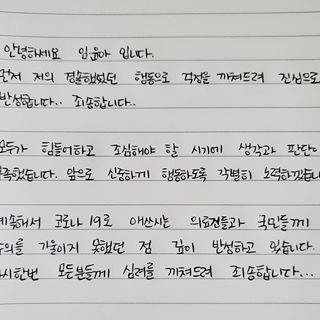 안녕하세요 임윤아 입니다.
먼저 저의 경솔했었던 행동으로 걱정을 끼쳐드려 진심으로
반성합니다.. 죄송합니다..
모두가 힘들어하고 조심해야 할 시기에 생각과 판단이
부족했습니다. 앞으로 신중하게 행동하도록 각별히 노력하겠습니
계속해서 코로나 19로 애쓰시는 의료진들과 국민들께
주의를 기울이지 못했던 점 깊이 반성하고 있습니다.
다시한번 모든분들께 심려를 끼쳐드려 죄송합니다...